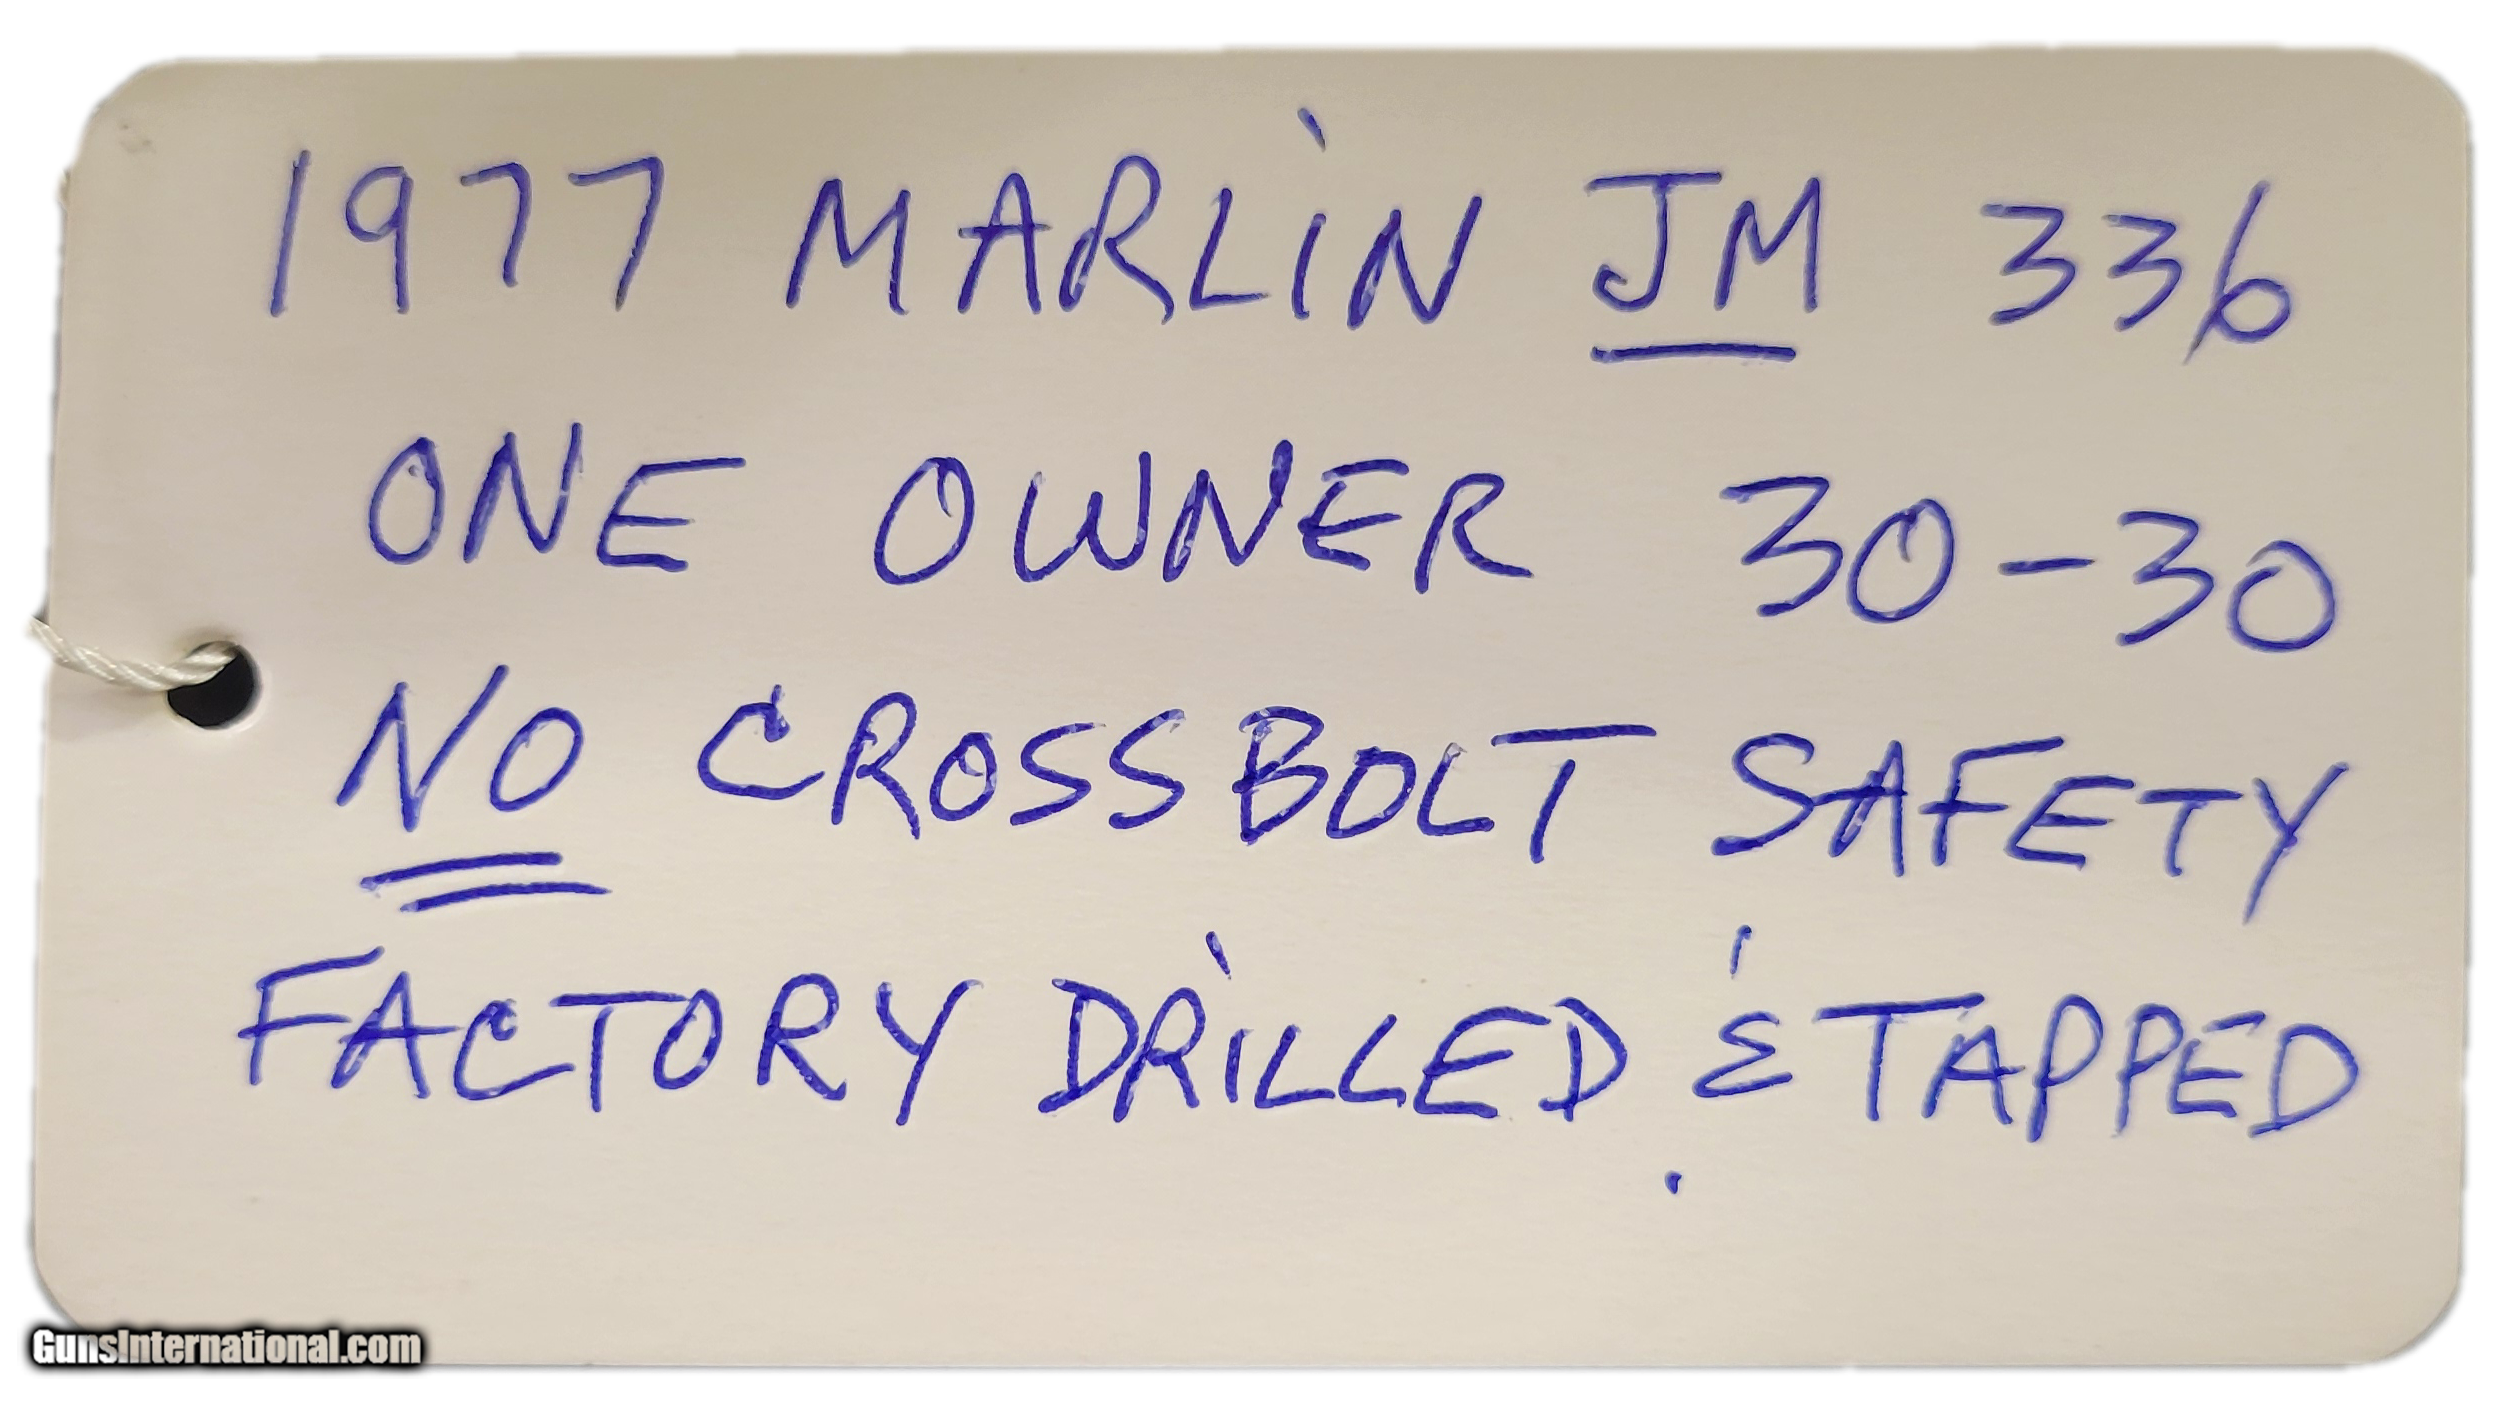 1977 MARLIN JM 336
ONE OWNER 30-30
NO CROSSBOLT SAFETY
FACTORY DRILLED & TAPPED
GunsInternational.com